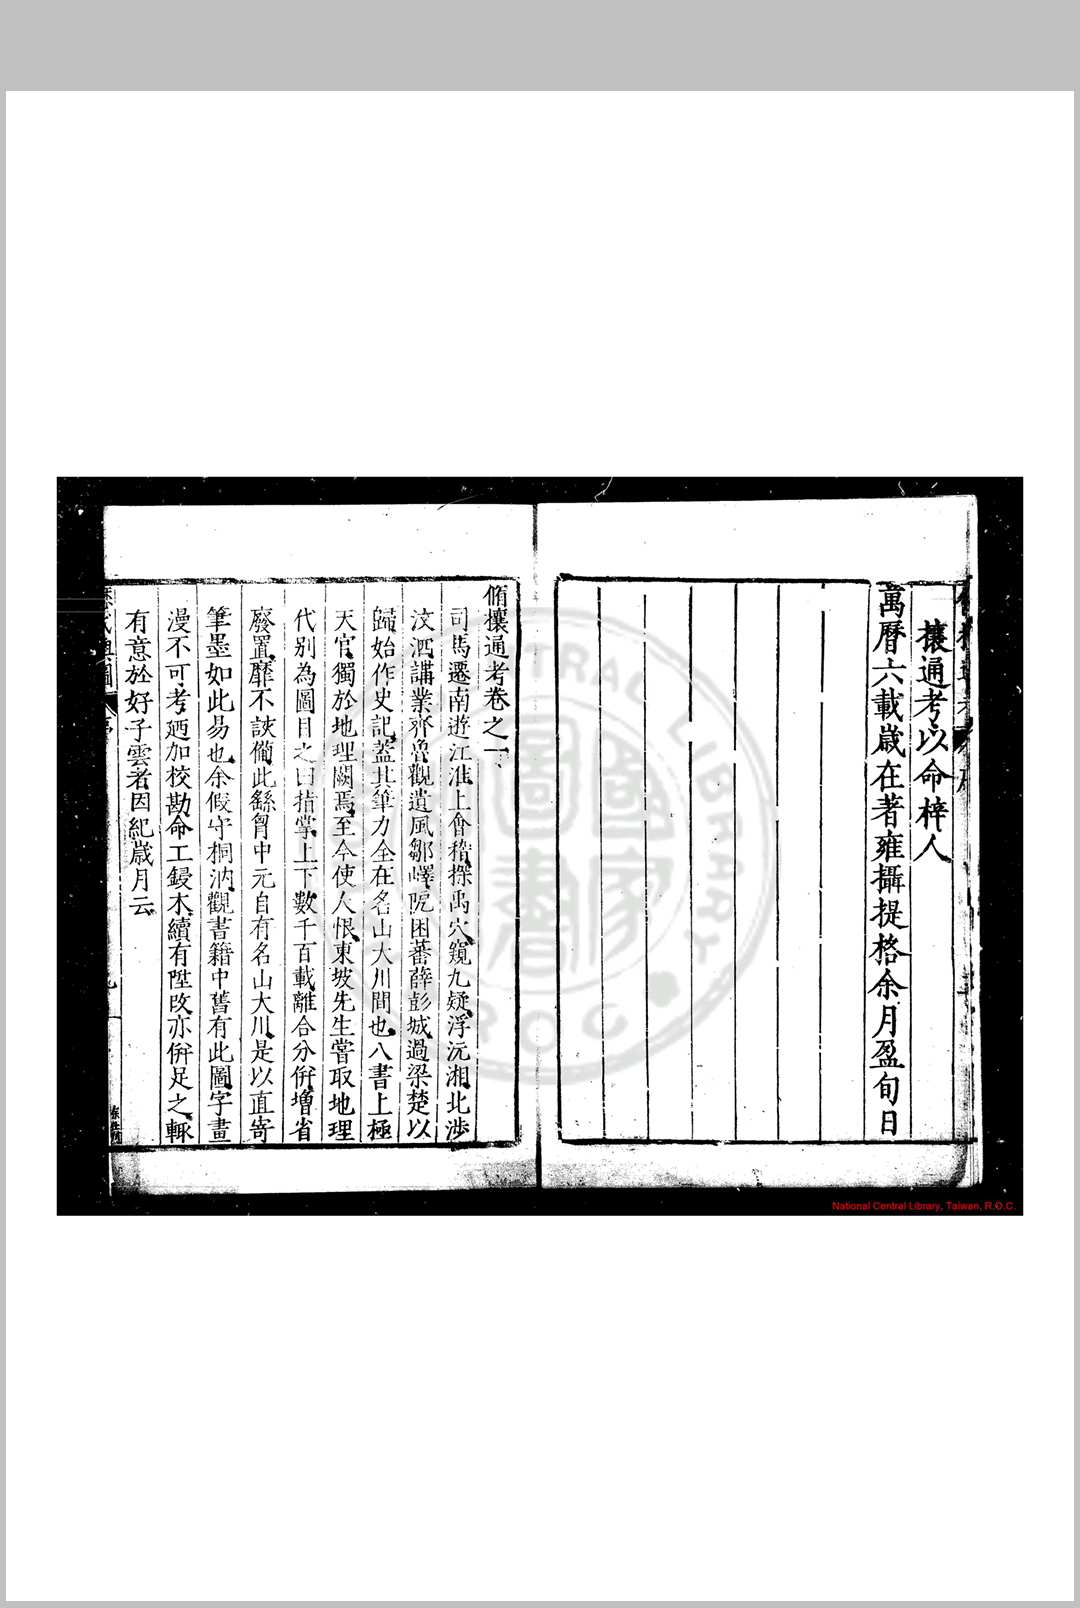 攘通考以命梓人
萬曆六載歲在著雍攝提格余月盈旬日
脩攘通考卷之一
司馬遷南遊江淮上會稽探禹穴窺九疑浮沅湘北涉
汶泗講業齊魯觀遺風鄒嶧阨困蕃薛彭城過梁楚以
歸始作史記蓋其筆力全在名山大川間也八書上極
天官獨於地理闕焉至今使人恨東坡先生嘗取地理
代別為圖目之曰指掌上下數千百載離合分併增省
廢置靡不該備此繇胷中元自有名山大川是以直寄
筆墨如此易也余假守桐汭觀書籍中舊有此圖字畫
漫不可考廼加挍勘命工鋟木續有陞改亦併足之輙
有意於好子雲者因紀歲月云
National Central Library, Taiwan, R.O.C.